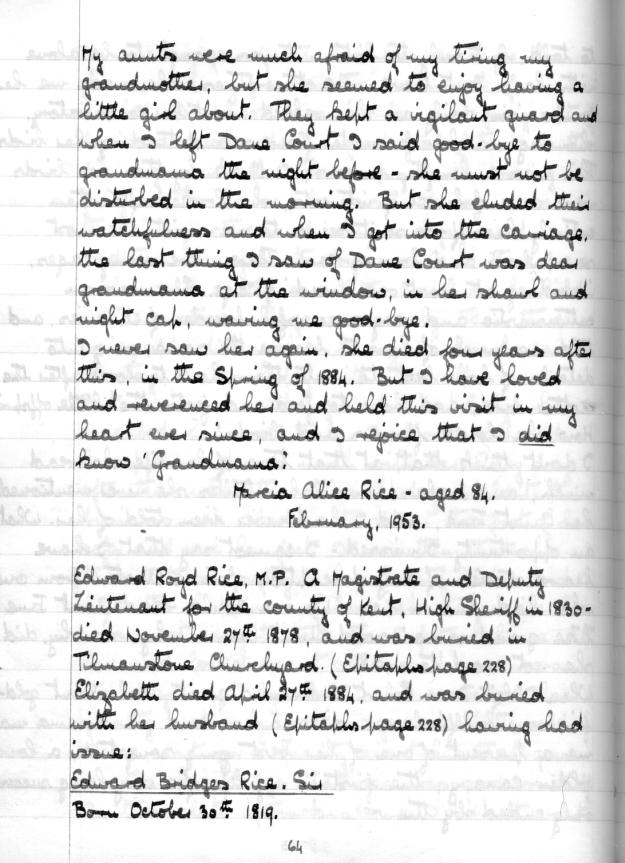 My aunts were much afraid of my tiring my
grandmother, but she seemed to enjoy having a
little girl about. They kept a vigilant guard and
when I left Dane Court I said good-bye to
grandmama the night before - she must not be
disturbed in the morning. But she eluded their
watchfulness and when I got into the carriage,
the last thing I saw of Dane Court was dear
grandmama at the window, in her shawl and
night cap, waving me good-bye.
I never saw her again, she died four years after
this, in the Spring of 1884. But I have loved
and reverenced her and held this visit in my
heart ever since, and I rejoice that I did
know 'Grandmama'.
Marcia Alice Rice - aged 84.
February, 1953.
Edward Royd Rice, M.P. A Magistrate and Deputy
Lieutenant for the county of Kent, High Sheriff in 1830 -
died November 27th 1878, and was buried in
Tilmanstone Churchyard. (Epitaphs page 228)
Elizabeth died April 27th 1884, and was buried
with her husband (Epitaphs page 228) having had
issue:
Edward Bridges Rice. Sir
Born October 30th 1819.
64